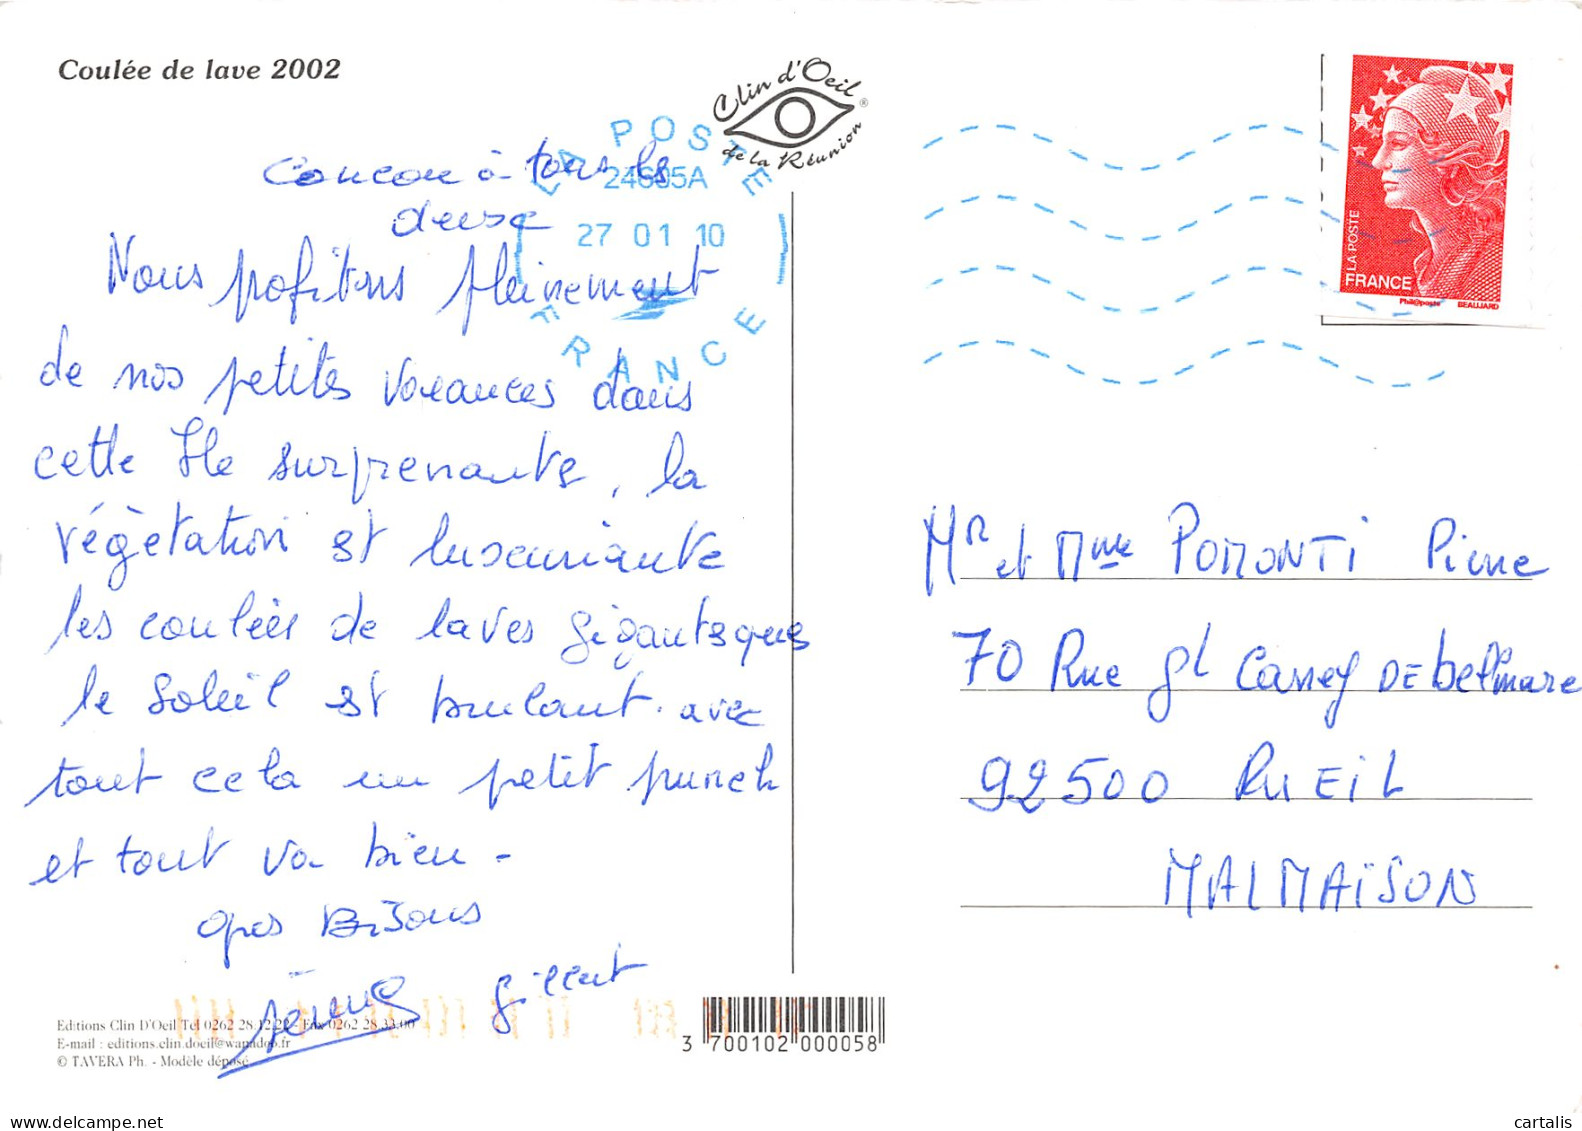 Coulée de lave 2002
Clin d'Oeil
de la Réunion
®
LA POSTE
24685A
27 01 10
FRANCE
LA POSTE
FRANCE
Phil@poste BEAUJARD
Coucou à tous les
deux
Nous profitons pleinement
de nos petites vacances dans
cette Île surprenante, la
végétation est luxuriante
les coulées de laves gigantesques
le soleil est brulant. avec
tout cela un petit punch
et tout va bien -
Gros Bisous
Gilbert
Mr et Mme POMONTI Pierre
70 Rue gl Carrey DE bellmare
92500 RUEIL
MALMAISON
Editions Clin D'Oeil Tel 0262 28.12.22 - Fax 0262 28.33.00
E-mail : editions.clin.doeil@wanadoo.fr
© TAVERA Ph. - Modèle déposé
3 700102 000058
delcampe.net
cartalis